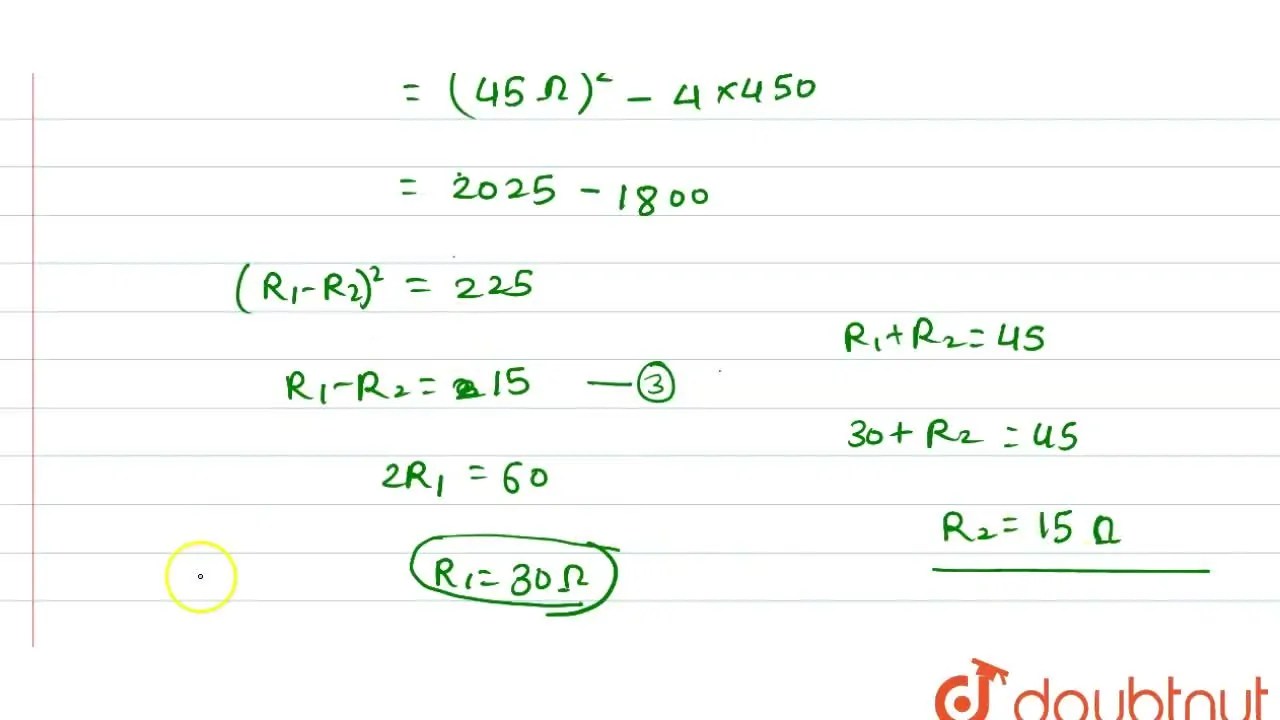 = (45 Ω)² - 4 × 450
= 2025 - 1800
(R₁-R₂)² = 225
R₁-R₂ = 15 — ③
2R₁ = 60
R₁ = 30 Ω
R₁+R₂ = 45
30+R₂ = 45
R₂ = 15 Ω
doubtnut